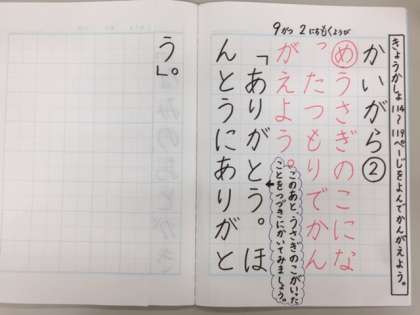 9がつ 2にちもくようび
きょうかしょ114〜119ぺーじをよんでかんがえよう。
かいがら②
めうさぎのこにな
ったつもりでかん
がえよう。
このあと、うさぎのこがいった
ことをつづきにかいてみましょう。
「ありがとう。ほ
んとうにありがと
う」。